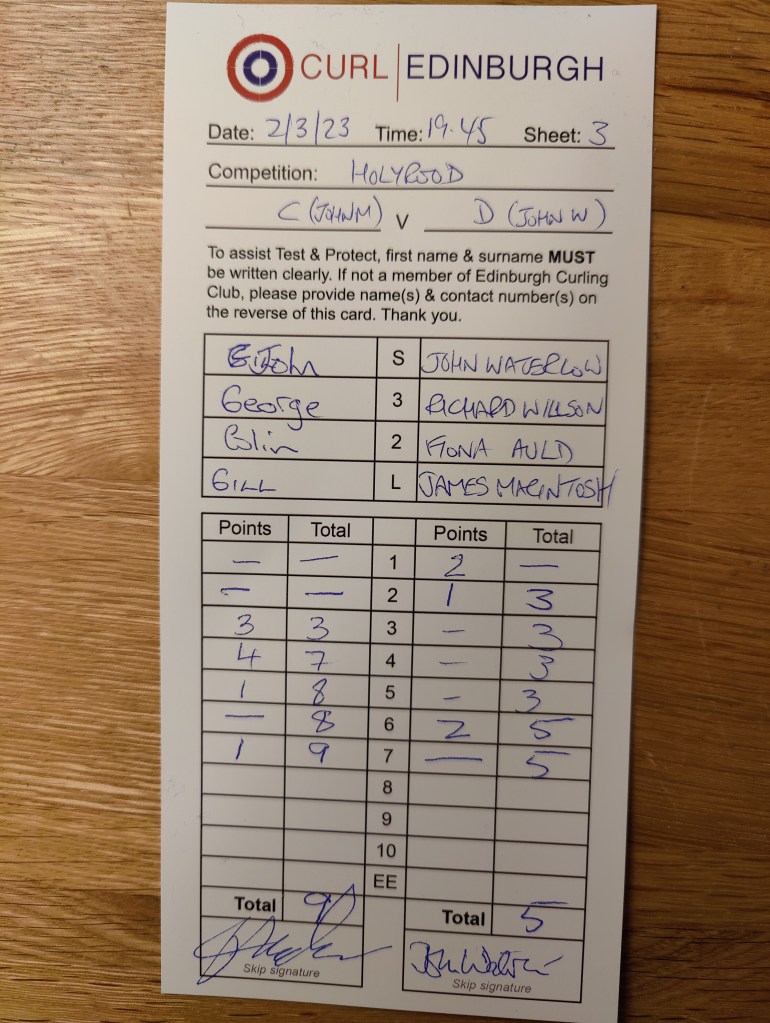 CURL EDINBURGH
Date: 2/3/23 Time: 19.45 Sheet: 3
Competition: HOLYROOD
C (JOHN M) V D (JOHN W)
To assist Test & Protect, first name & surname MUST
be written clearly. If not a member of Edinburgh Curling
Club, please provide name(s) & contact number(s) on
the reverse of this card. Thank you.
John S JOHN WATERLOW
George 3 RICHARD WILLSON
Colin 2 FIONA AULD
GILL L JAMES MACINTOSH
Points Total Points Total
— — 1 2 —
— — 2 1 3
3 3 3 - 3
4 7 4 - 3
1 8 5 - 3
— 8 6 2 5
1 9 7 — 5
8
9
10
EE
Total 9 Total 5
Skip signature Skip signature